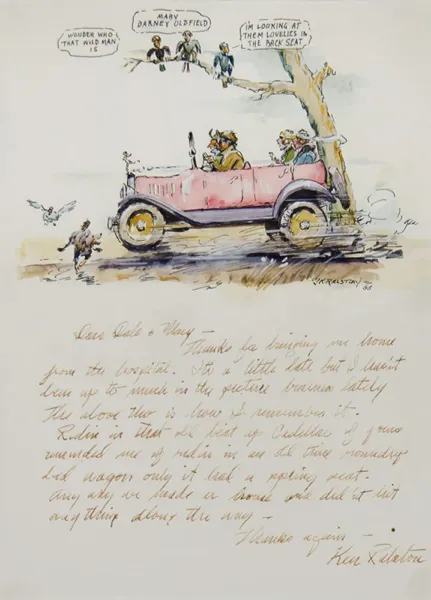 WONDER WHO
THAT WILD MAN
IS
MABY
BARNEY OLDFIELD
I'M LOOKING AT
THEM LOVELIES IN
THE BACK SEAT
J.K. RALSTON
Dear Dale & Mary —
Thanks for bringing me home
from the hospital. It's a little late but I haven't
been up to much in the picture business lately
The above thar is how I remember it.
Ridin in that old beat up Cadillac of yours
reminded me of ridin in an old time roundup
bed wagon only it had a spring seat.
Any way we made it home and didn't hit
any thing along the way —
Thanks again —
Ken Ralston